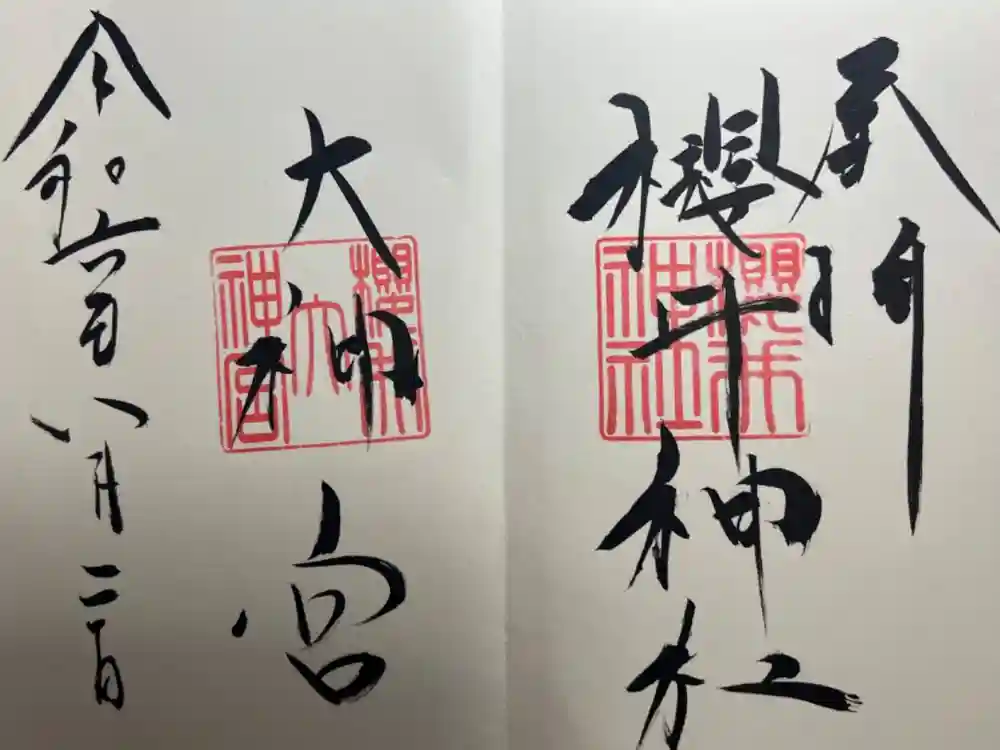 奉拝
櫻井神社
櫻井
神社
大神宮
櫻井
大
神宮
令和六年八月二日